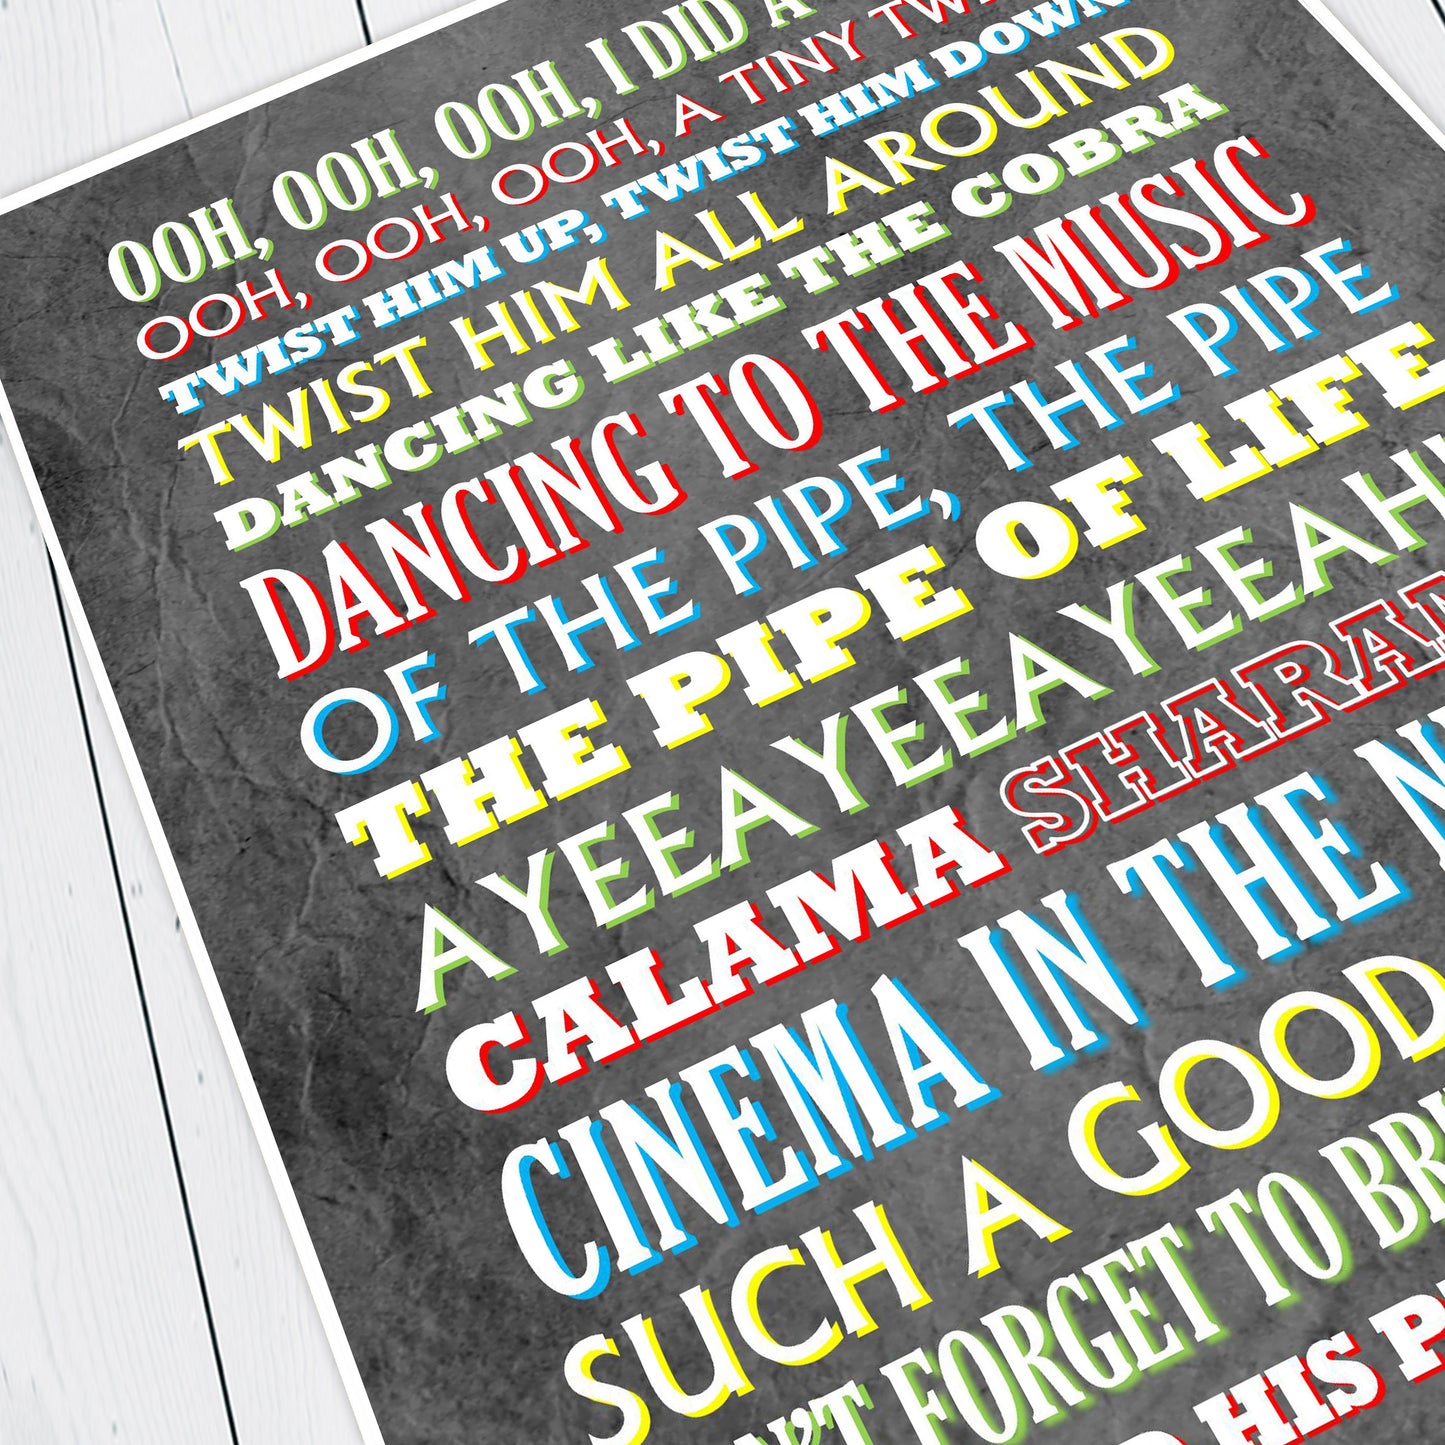 OOH, OOH, OOH, I DID A
OOH, OOH, OOH, A TINY
TWIST HIM UP, TWIST HIM DOWN
TWIST HIM ALL AROUND
DANCING LIKE THE COBRA
DANCING TO THE MUSIC
OF THE PIPE, THE PIPE
THE PIPE OF LIFE
AYEEAYEEAYEEAH
CALAMA
CINEMA IN THE
SUCH A GOOD
FORGET TO
HIS